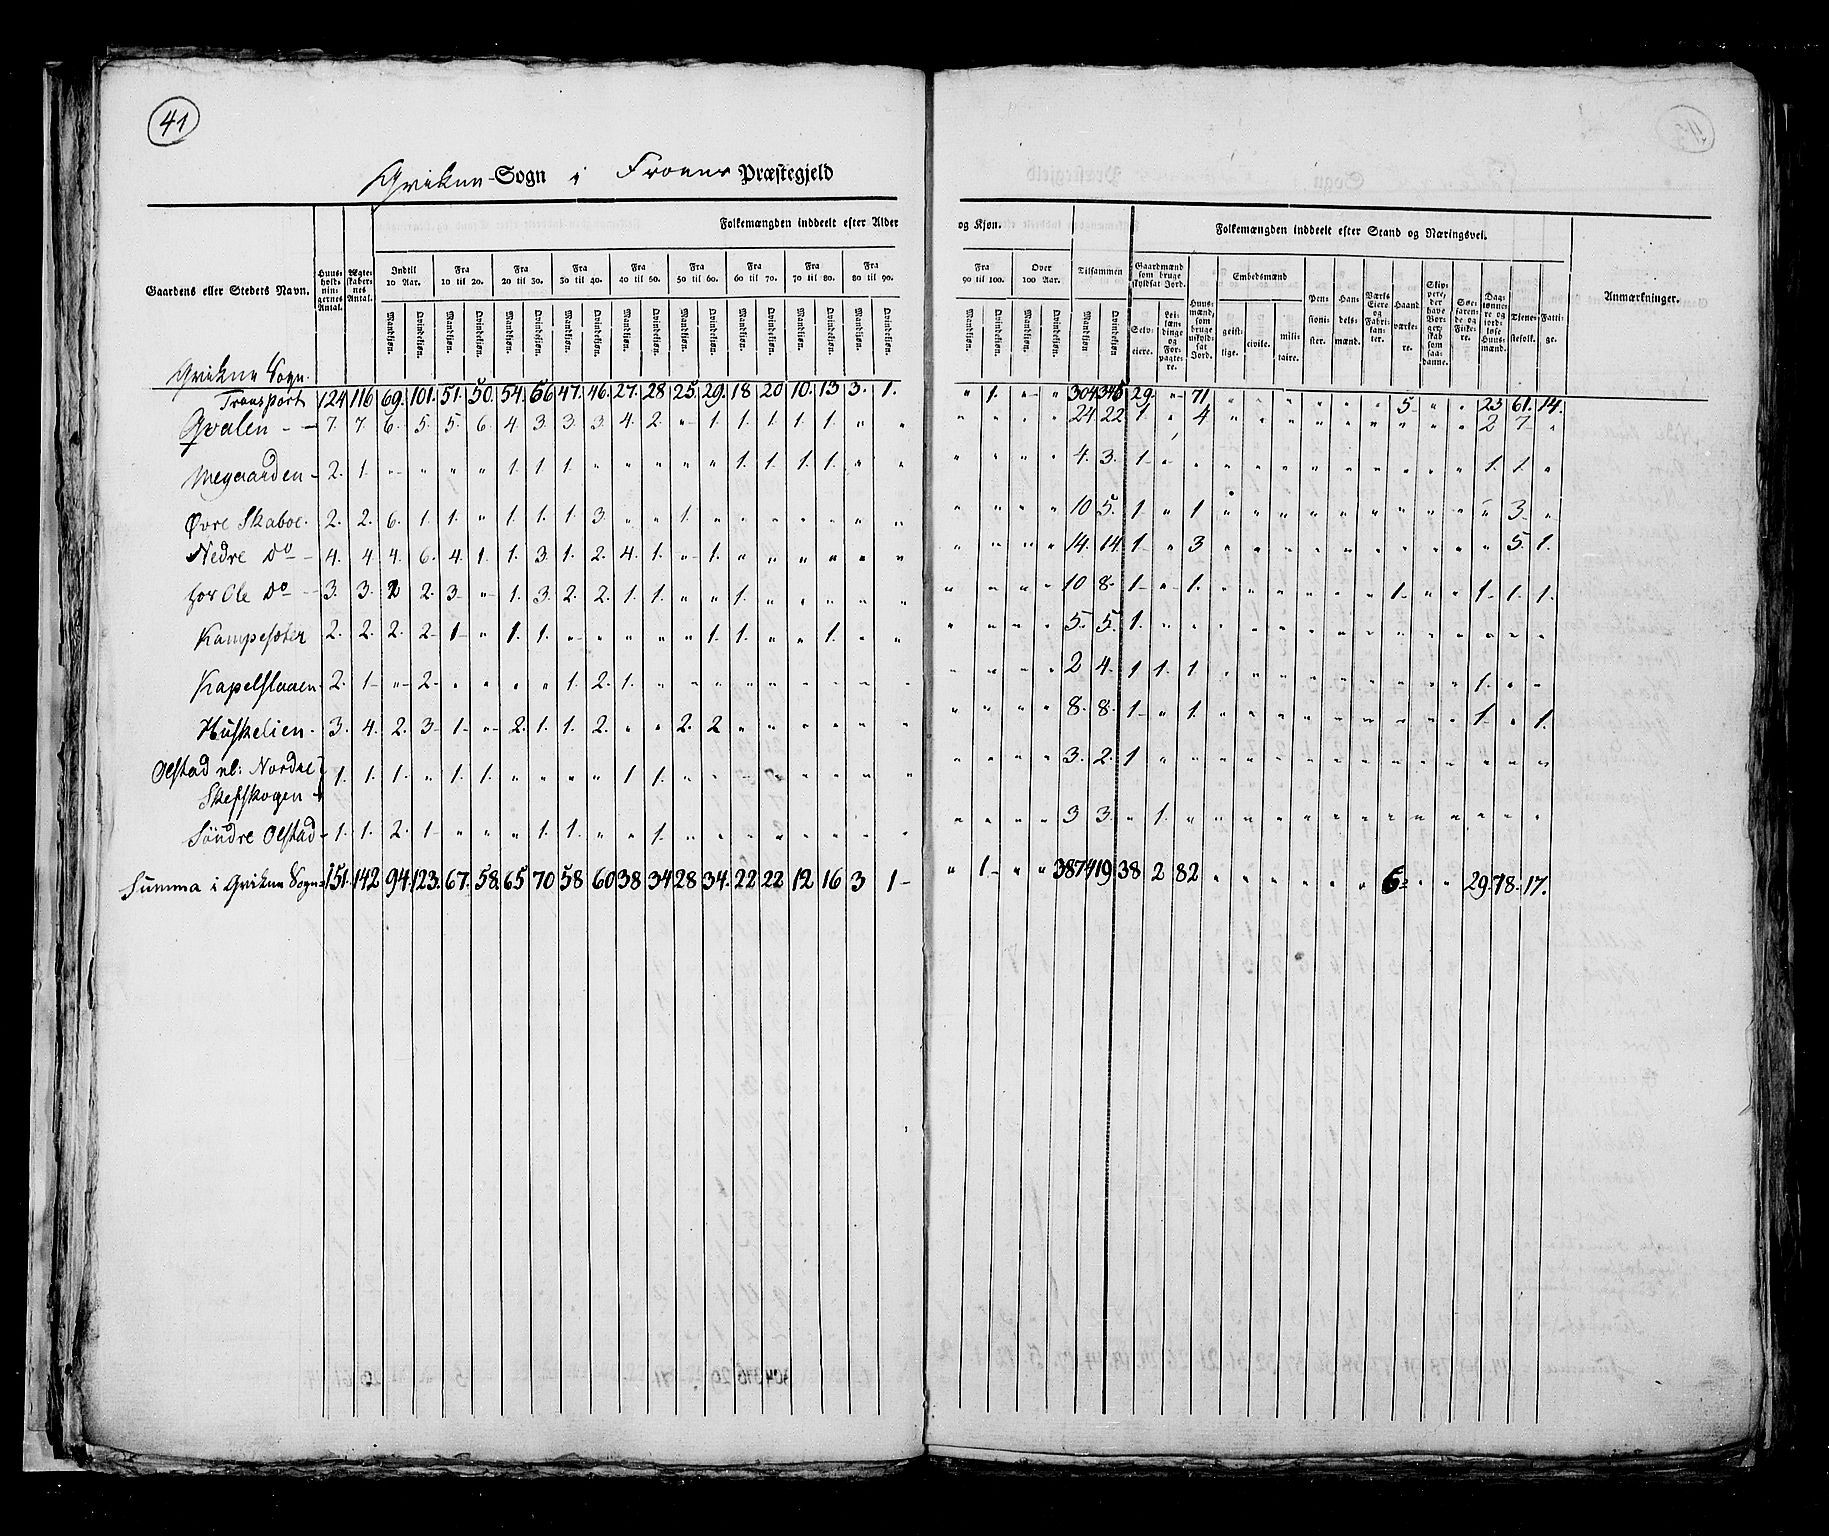 41
Qvikne Sogn i Froens Præstegjeld
Folkemængden inddeelt efter Alder og Kjøn.
Folkemængden inddeelt efter Stand og Næringsvei.
Gaardens eller Stedets Navn.
Huusholdningernes Antal.
Ægteskabernes Antal.
Indtil 10 Aar.
Fra 10 til 20.
Fra 20 til 30.
Fra 30 til 40.
Fra 40 til 50.
Fra 50 til 60.
Fra 60 til 70.
Fra 70 til 80.
Fra 80 til 90.
Fra 90 til 100.
Over 100 Aar.
Tilsammen
Mandkjøn. Qvindekjøn.
Gaardmænd som bruge skyldsat Jord.
Selveiere.
Leilændinge og Forpagtere.
Huusmænd, som bruge uskyldsat Jord.
Embedsmænd
geistlige. civile. militaire.
Pensionister.
Handelsmænd.
Værks Eiere og Fabrikanter.
Haandværkere.
Skippere, der have Borgerskab som saadanne.
Søefarende og Fiskere.
Daglønnere og jordløse Huusmænd.
Tjenestefolk.
Fattige.
Anmærkninger.
Qvikne Sogn.
Transport 124 116 69. 101. 51. 50. 54. 56 47. 46. 27. 28 25. 29. 18 20 10. 13 3. 1. " 1. " " 304 346 29. " 71 " " " " " " 5 " " 23 61. 14.
Qvalen 7. 7. 6. 5. 5. 6. 4. 3. 3. 3. 4. 2. " 1. 1. 1. 1. 1. " " " " " " 24 22 1. " 4 " " " " " " " " " 2 7 "
Megaarden 2. 1. " " " " 1. 1. 1. " " " " " 1. 1. 1. 1. " " " " " " 4. 3. 1 " " " " " " " " " " " 1. 1. "
Øvre Skaboe. 2. 2. 6. 1. 1. " 1. 1. 1. 3. " " 1. " " " " " " " " " " " 10 5. 1. " 1 " " " " " " " " " " 3 "
Nedre Do 4. 4. 4. 6. 4. 1. 1. 3. 1. 2. 4. 1. " 1. " " " " " " " " " " 14. 14. 1 " 3 " " " " " " " " " " 5. 1.
for Ole Do 3. 3. 2 2. 3 " 1. 3. 2. 2. 1. 1. " " 1. " " " " " " " " " 10 8. 1 " 1. " " " " " " 1. " " 1. 1. 1.
Kampesæter 2. 2. 2. 2. 1 " 1. 1. " " " " " 1. 1. " " 1. " " " " " " 5. 5. 1. " " " " " " " " " " " " " "
Kapelslaaen 2. 1 " 2. " " " " 1. 2. 1. " " " " " " " " " " " " " 2 4. 1 1. 1 " " " " " " " " " 1. " "
Huskelien. 3. 4. 2. 3 1 " 2. 1. 1. 2. " " 2. 2 " " " " " " " " " " 8. 8. 1 " 1. " " " " " " " " " 1 " 1.
Olstad nl: Nordre
Skefskogen 1. 1. 1. " 1. 1. " " " " 1. 1. " " " " " " " " " " " " 3. 2. 1 " " " " " " " " " " " " " "
Søndre Olstad 1. 1. 2. 1 " " " 1. 1. " " 1. " " " " " " " " " " " " 3 3. " 1. " " " " " " " " " " " " "
Summa i Qvikne Sogn 151. 142 94. 123. 67. 58. 65 70 58 60 38 34 28 34. 22 22 12 16 3 1 " 1 " " 387 419 38 2 82 " " " " " " 6 " " 29. 78. 17.